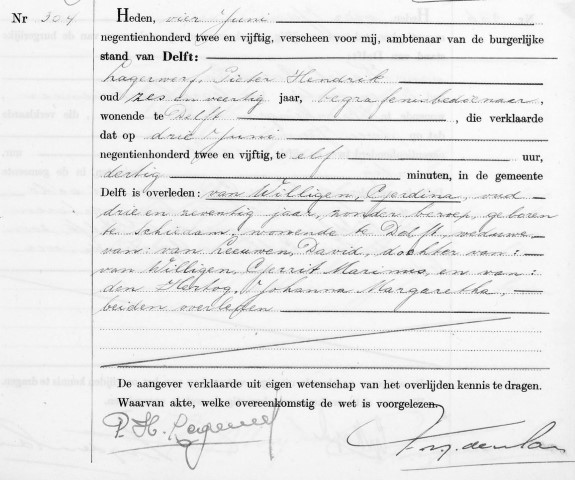 Nr 304 Heden, vier Juni
negentienhonderd twee en vijftig, verscheen voor mij, ambtenaar van de burgerlijke
stand van Delft:
Lagerwerf, Pieter Hendrik
oud zes en veertig jaar, begrafenisbedienaar,
wonende te Delft, die verklaarde
dat op drie Juni
negentienhonderd twee en vijftig, te elf uur,
dertig minuten, in de gemeente
Delft is overleden: van Willigen, Gerdina, oud
drie en zeventig jaar, zonder beroep, geboren
te Schiedam, wonende te Delft, weduwe
van: van Leeuwen, David, dochter van:
van Willigen, Gerrit Marinus en van:
den Hertog, Johanna Margaretha,
beiden overleden
De aangever verklaarde uit eigen wetenschap van het overlijden kennis te dragen.
Waarvan akte, welke overeenkomstig de wet is voorgelezen.
P. H. Lagerwerf